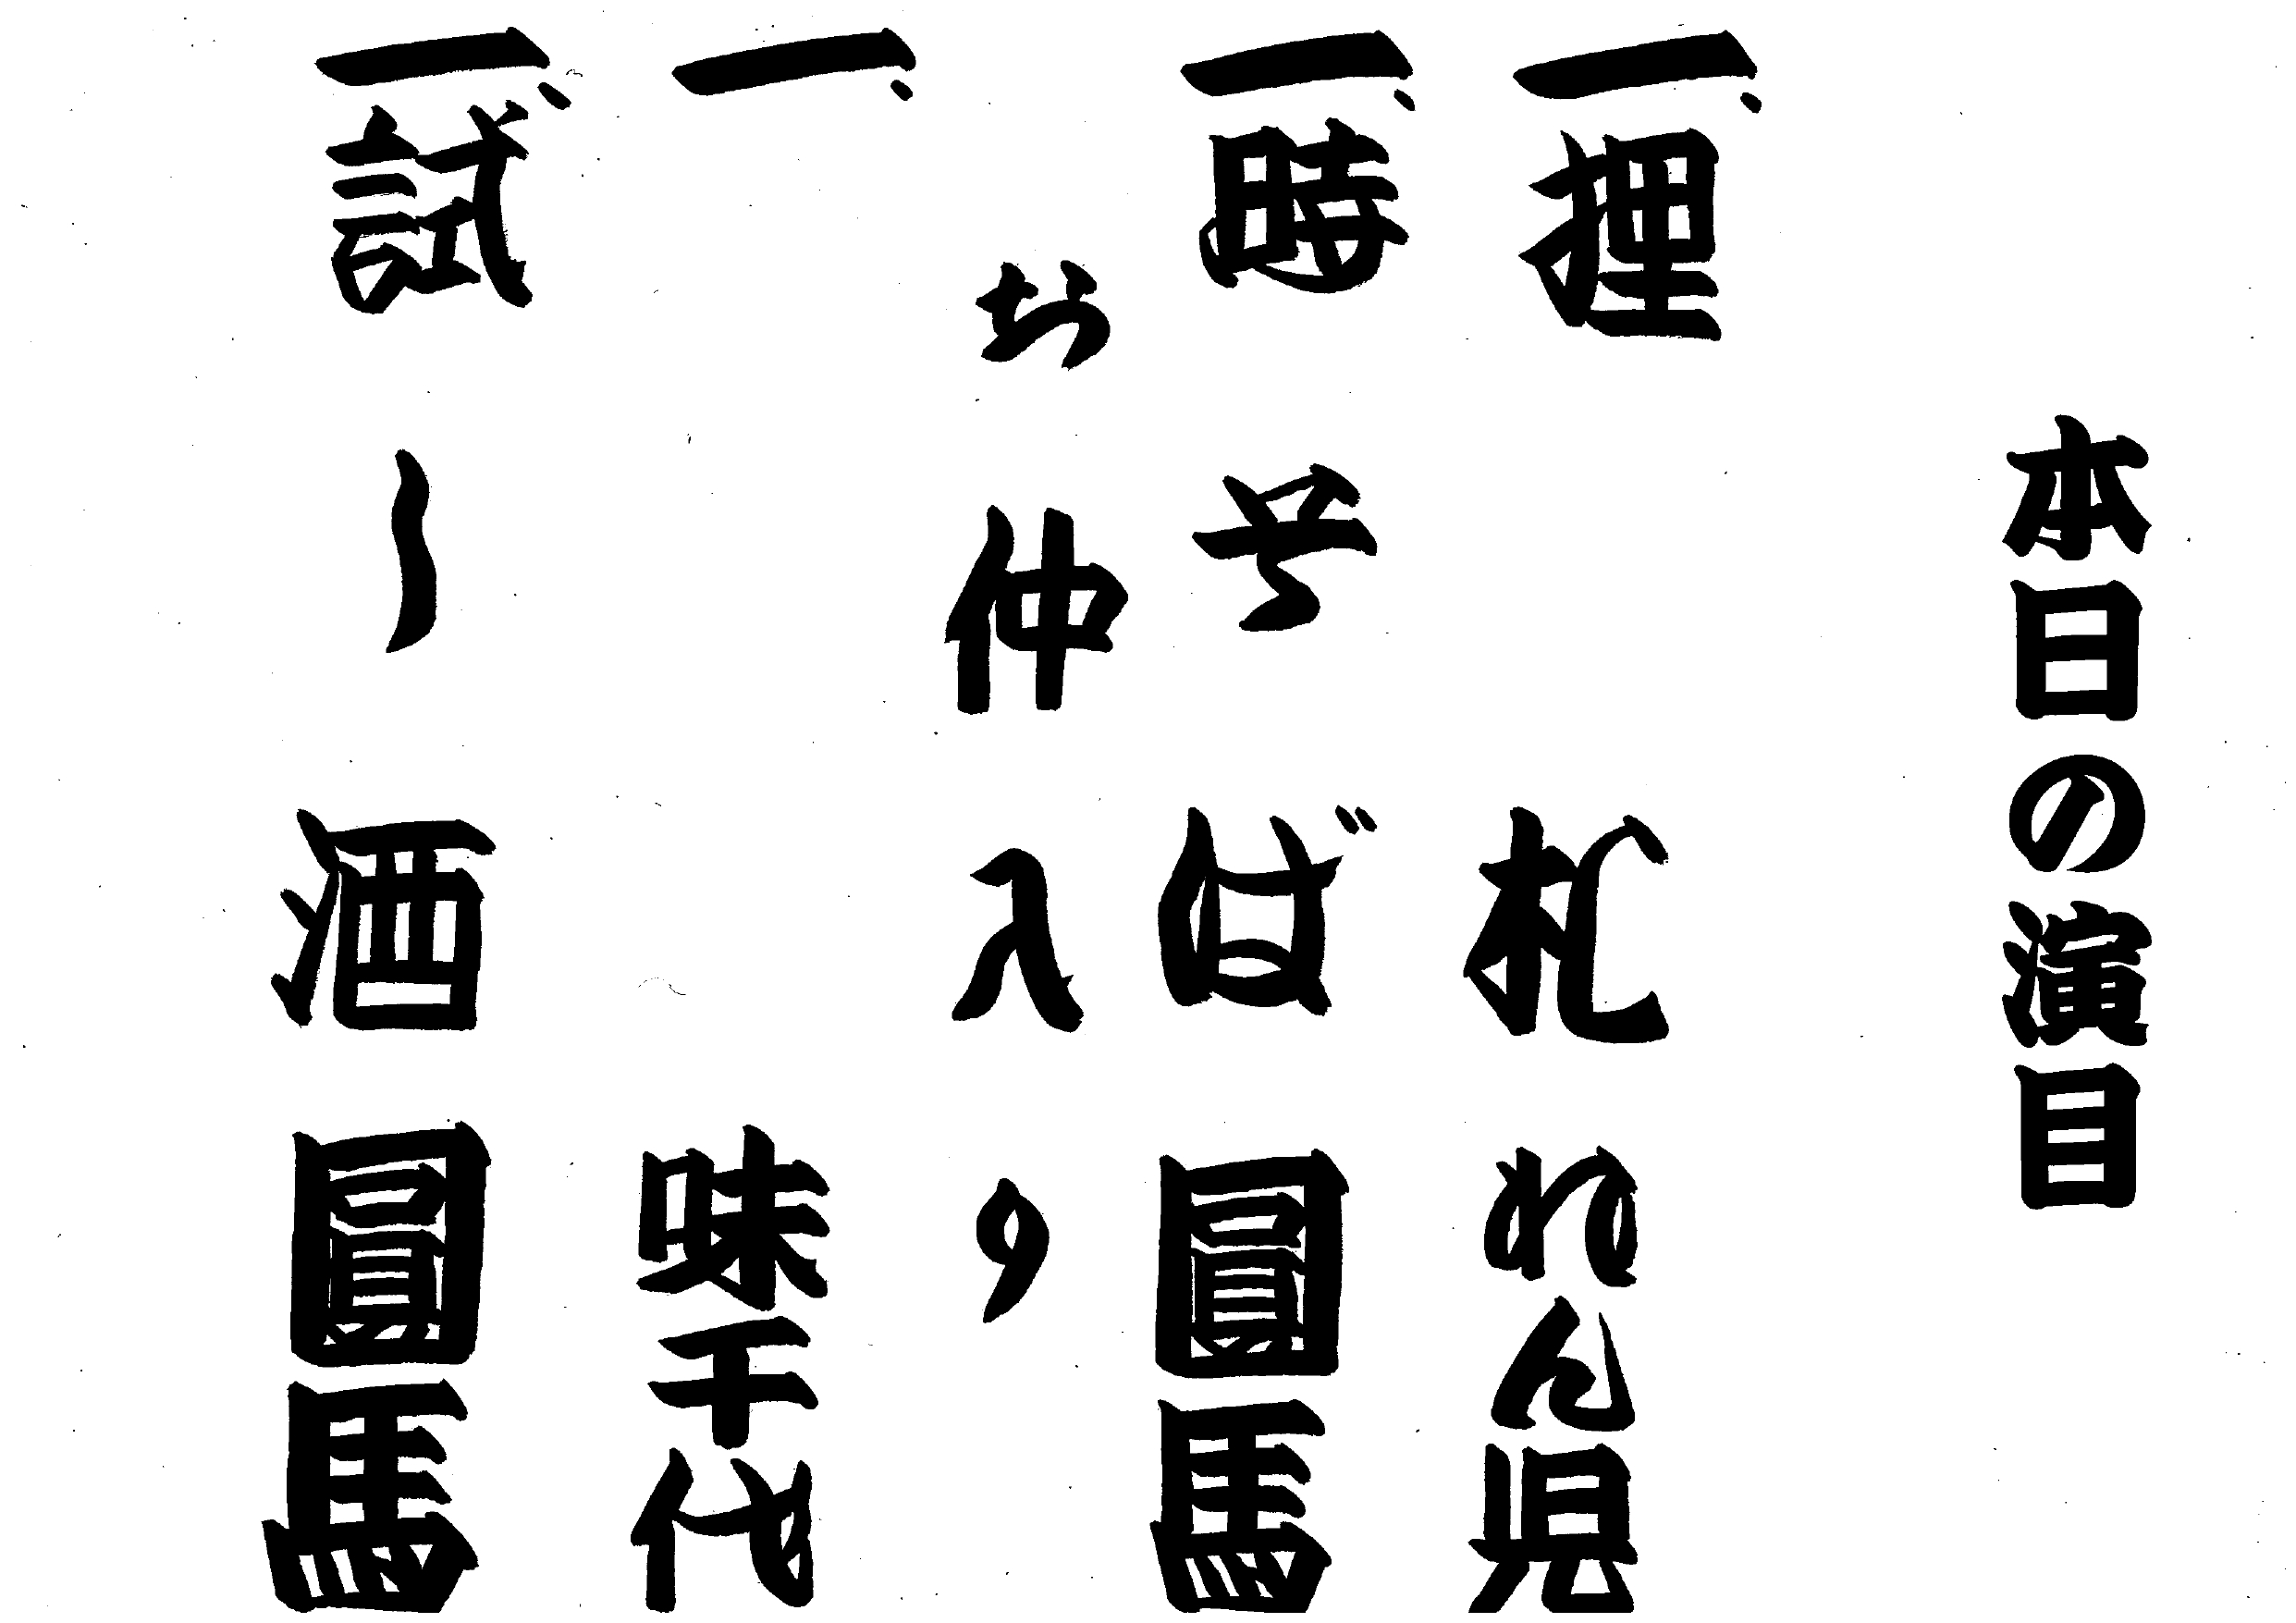 本日の演目
一、狸札 れん児
一、時そば 圓馬
お仲入り
一、 味千代
一、試し酒 圓馬